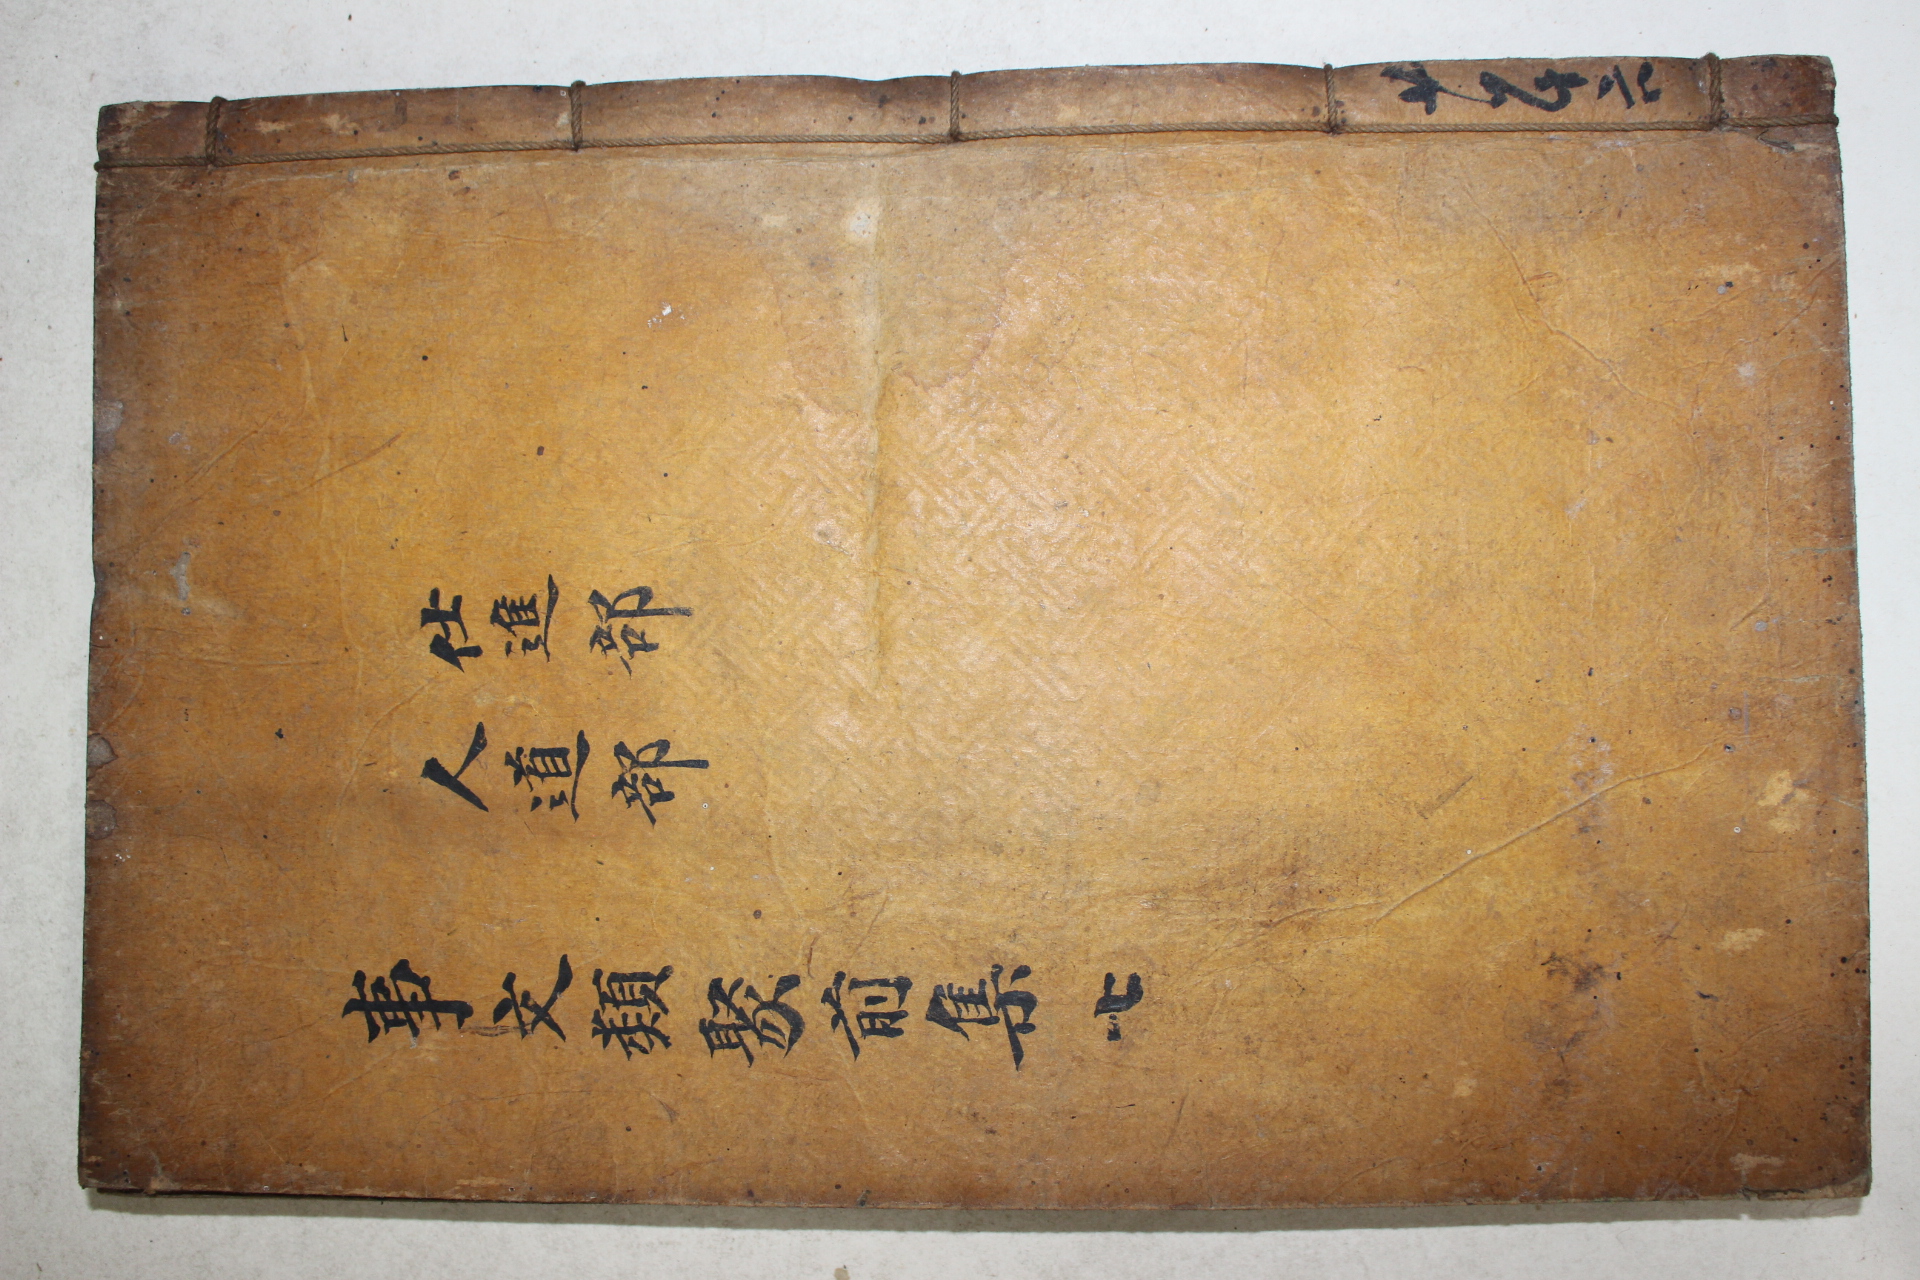 仕進部
人道部
事文類聚前集 七